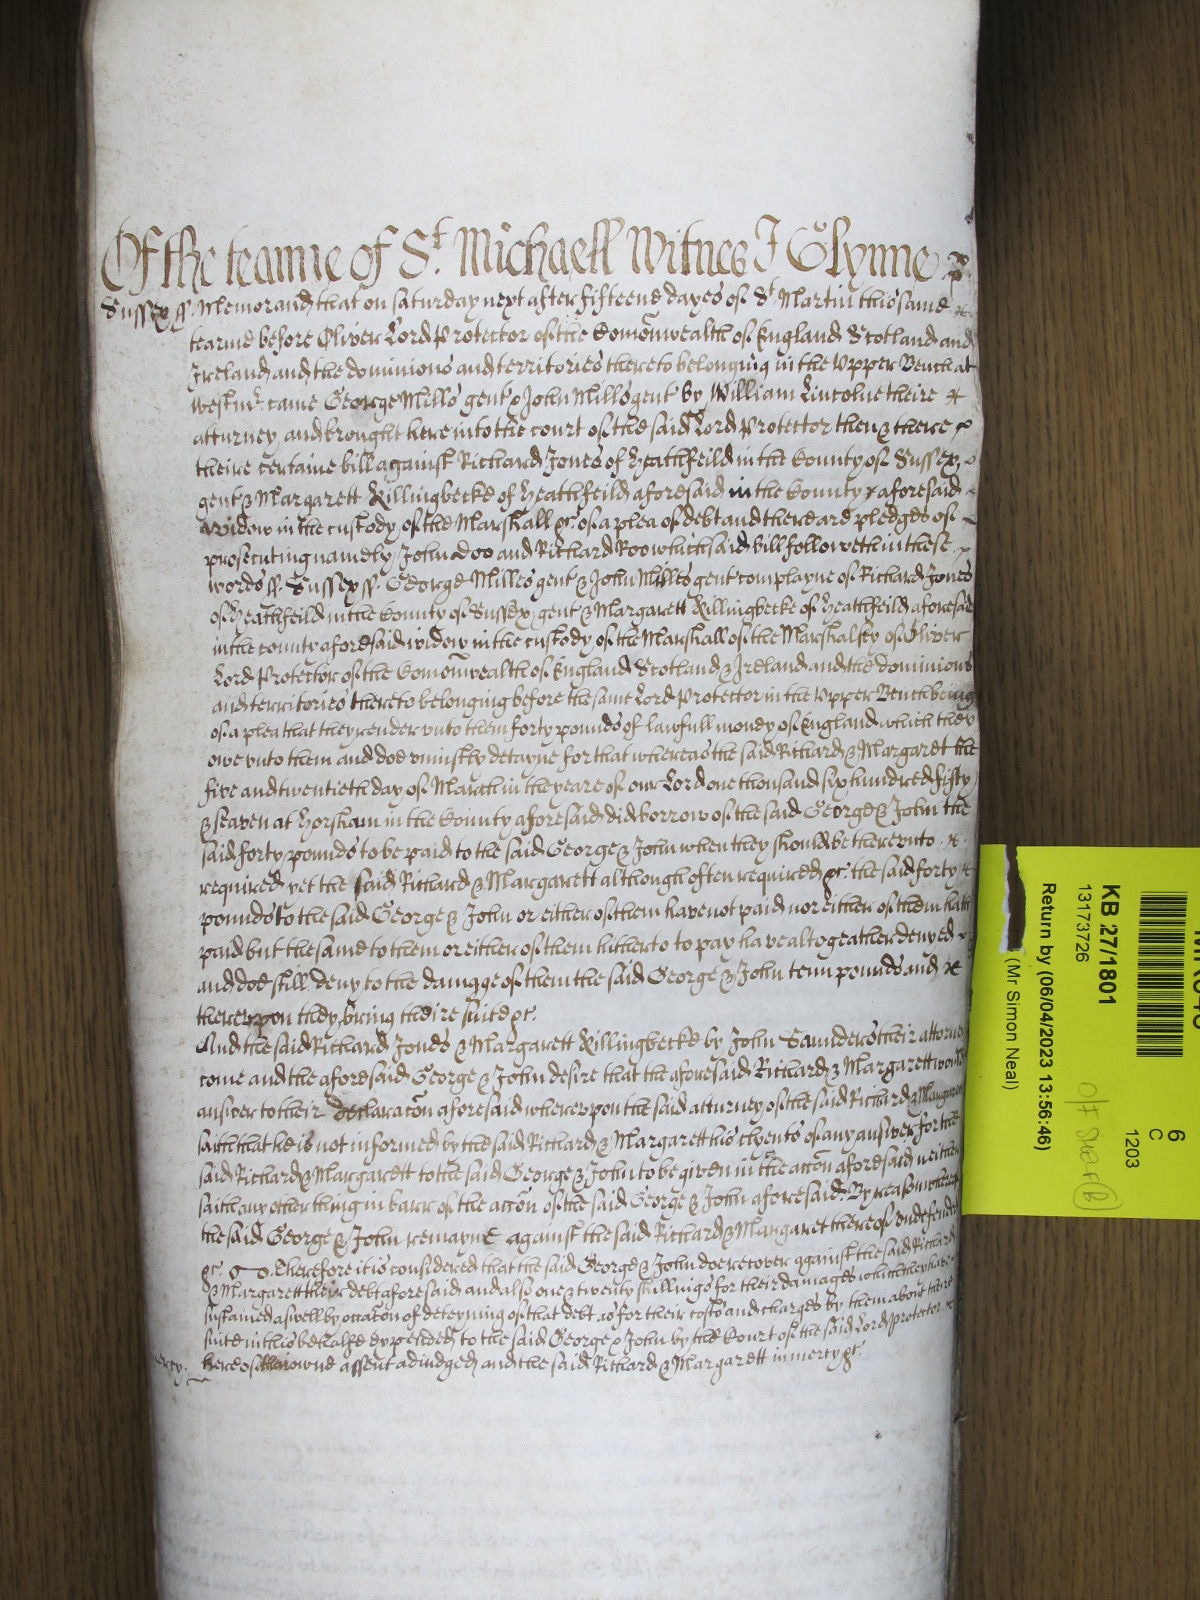 Of the tearme of St. Michaell Witnes J Glynne
Sussex ss. Memorand that on saturday next after fifteene dayes of St Martin this same
tearme before Oliver Lord Protector of the Comonwealth of England Scotland and
Ireland and the dominions and territories thereto belonging in the Vpper Bench at
Westmr. came George Mills gent & John Mills gent by William Lincolne theire
atturney and brought here into the court of the said Lord Protector then & there
theire certaine bill against Richard Jones of Heathfeild in the County of Sussex
gent & Margarett Killingbecke of Heathfeild aforesaid in the County aforesaid
widow in the custody of the Marshall &c. of a plea of debt and there are pledges of
prosecuting namely John Doo and Richard Roo which said bill followeth in these
words ss. Sussex ss. George Milles gent & John Milles gent complayne of Richard Jones
of Heathfeild in the County of Sussex gent & Margarett Killingbecke of Heathfeild aforesaid
in the county aforesaid widow in the custody of the Marshall of the Marshalsey of Oliver
Lord Protector of the Comonwealth of England Scotland & Ireland and the dominions
and territories thereto belonging before the same Lord Protector in the Vpper Bench being
of a plea that they render vnto them forty pounds of lawfull money of England which they
owe vnto them and doe vniustly detayne for that whereas the said Richard & Margarett the
five and twentieth day of March in the yeare of our Lord one thousand six hundred fifty
& seaven at Horsham in the County aforesaid did borrow of the said George & John the
said forty pounds to be paid to the said George & John when they should be therevnto
required yet the said Richard & Margarett although often required &c. the said forty
pounds to the said George & John or either of them have not paid nor either of them hath
paid but the same to them or either of them hitherto to pay have altogeather denyed
and doe still deny to the damage of them the said George & John tenn pounds and
therevpon they bring theire suite &c.
And the said Richard Jones & Margarett Killingbecke by John Saunders their attorney
come and the aforesaid George & John desire that the aforesaid Richard & Margarett would
answer to their declaracon aforesaid wherevpon the said atturney of the said Richard & Margarett
saith that he is not informed by the said Richard & Margarett his clyents of any answer for the
said Richard & Margarett to the said George & John to be given in the accon aforesaid neither
saith any other thing in barr of the accon of the said George & John aforesaid. By reason whereof
the said George & John remayne against the said Richard & Margarett thereof vndefended
&c. Therefore it is considered that the said George & John doe recover against the said Richard
& Margarett their debt aforesaid and also one & twenty shillings for their damages which they have
sustained aswell by occacon of deteyning of that debt as for their costs and charges by them about their
suite in this behalfe expended to the said George & John by the Court of the said Lord Protector
here of their owne assent adiudged and the said Richard & Margarett in mercy &c.
mercy.
6
C
1203
KB 27/1801
13173726
Return by (06/04/2023 13:56:46)
(Mr Simon Neal)